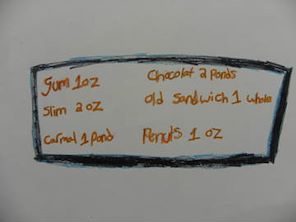 Gum 1oz
Chocolat 2 Ponds
Slim 2 oz
old Sandwich 1 whole
Carmel 1 Pond
Penuts 1 oz